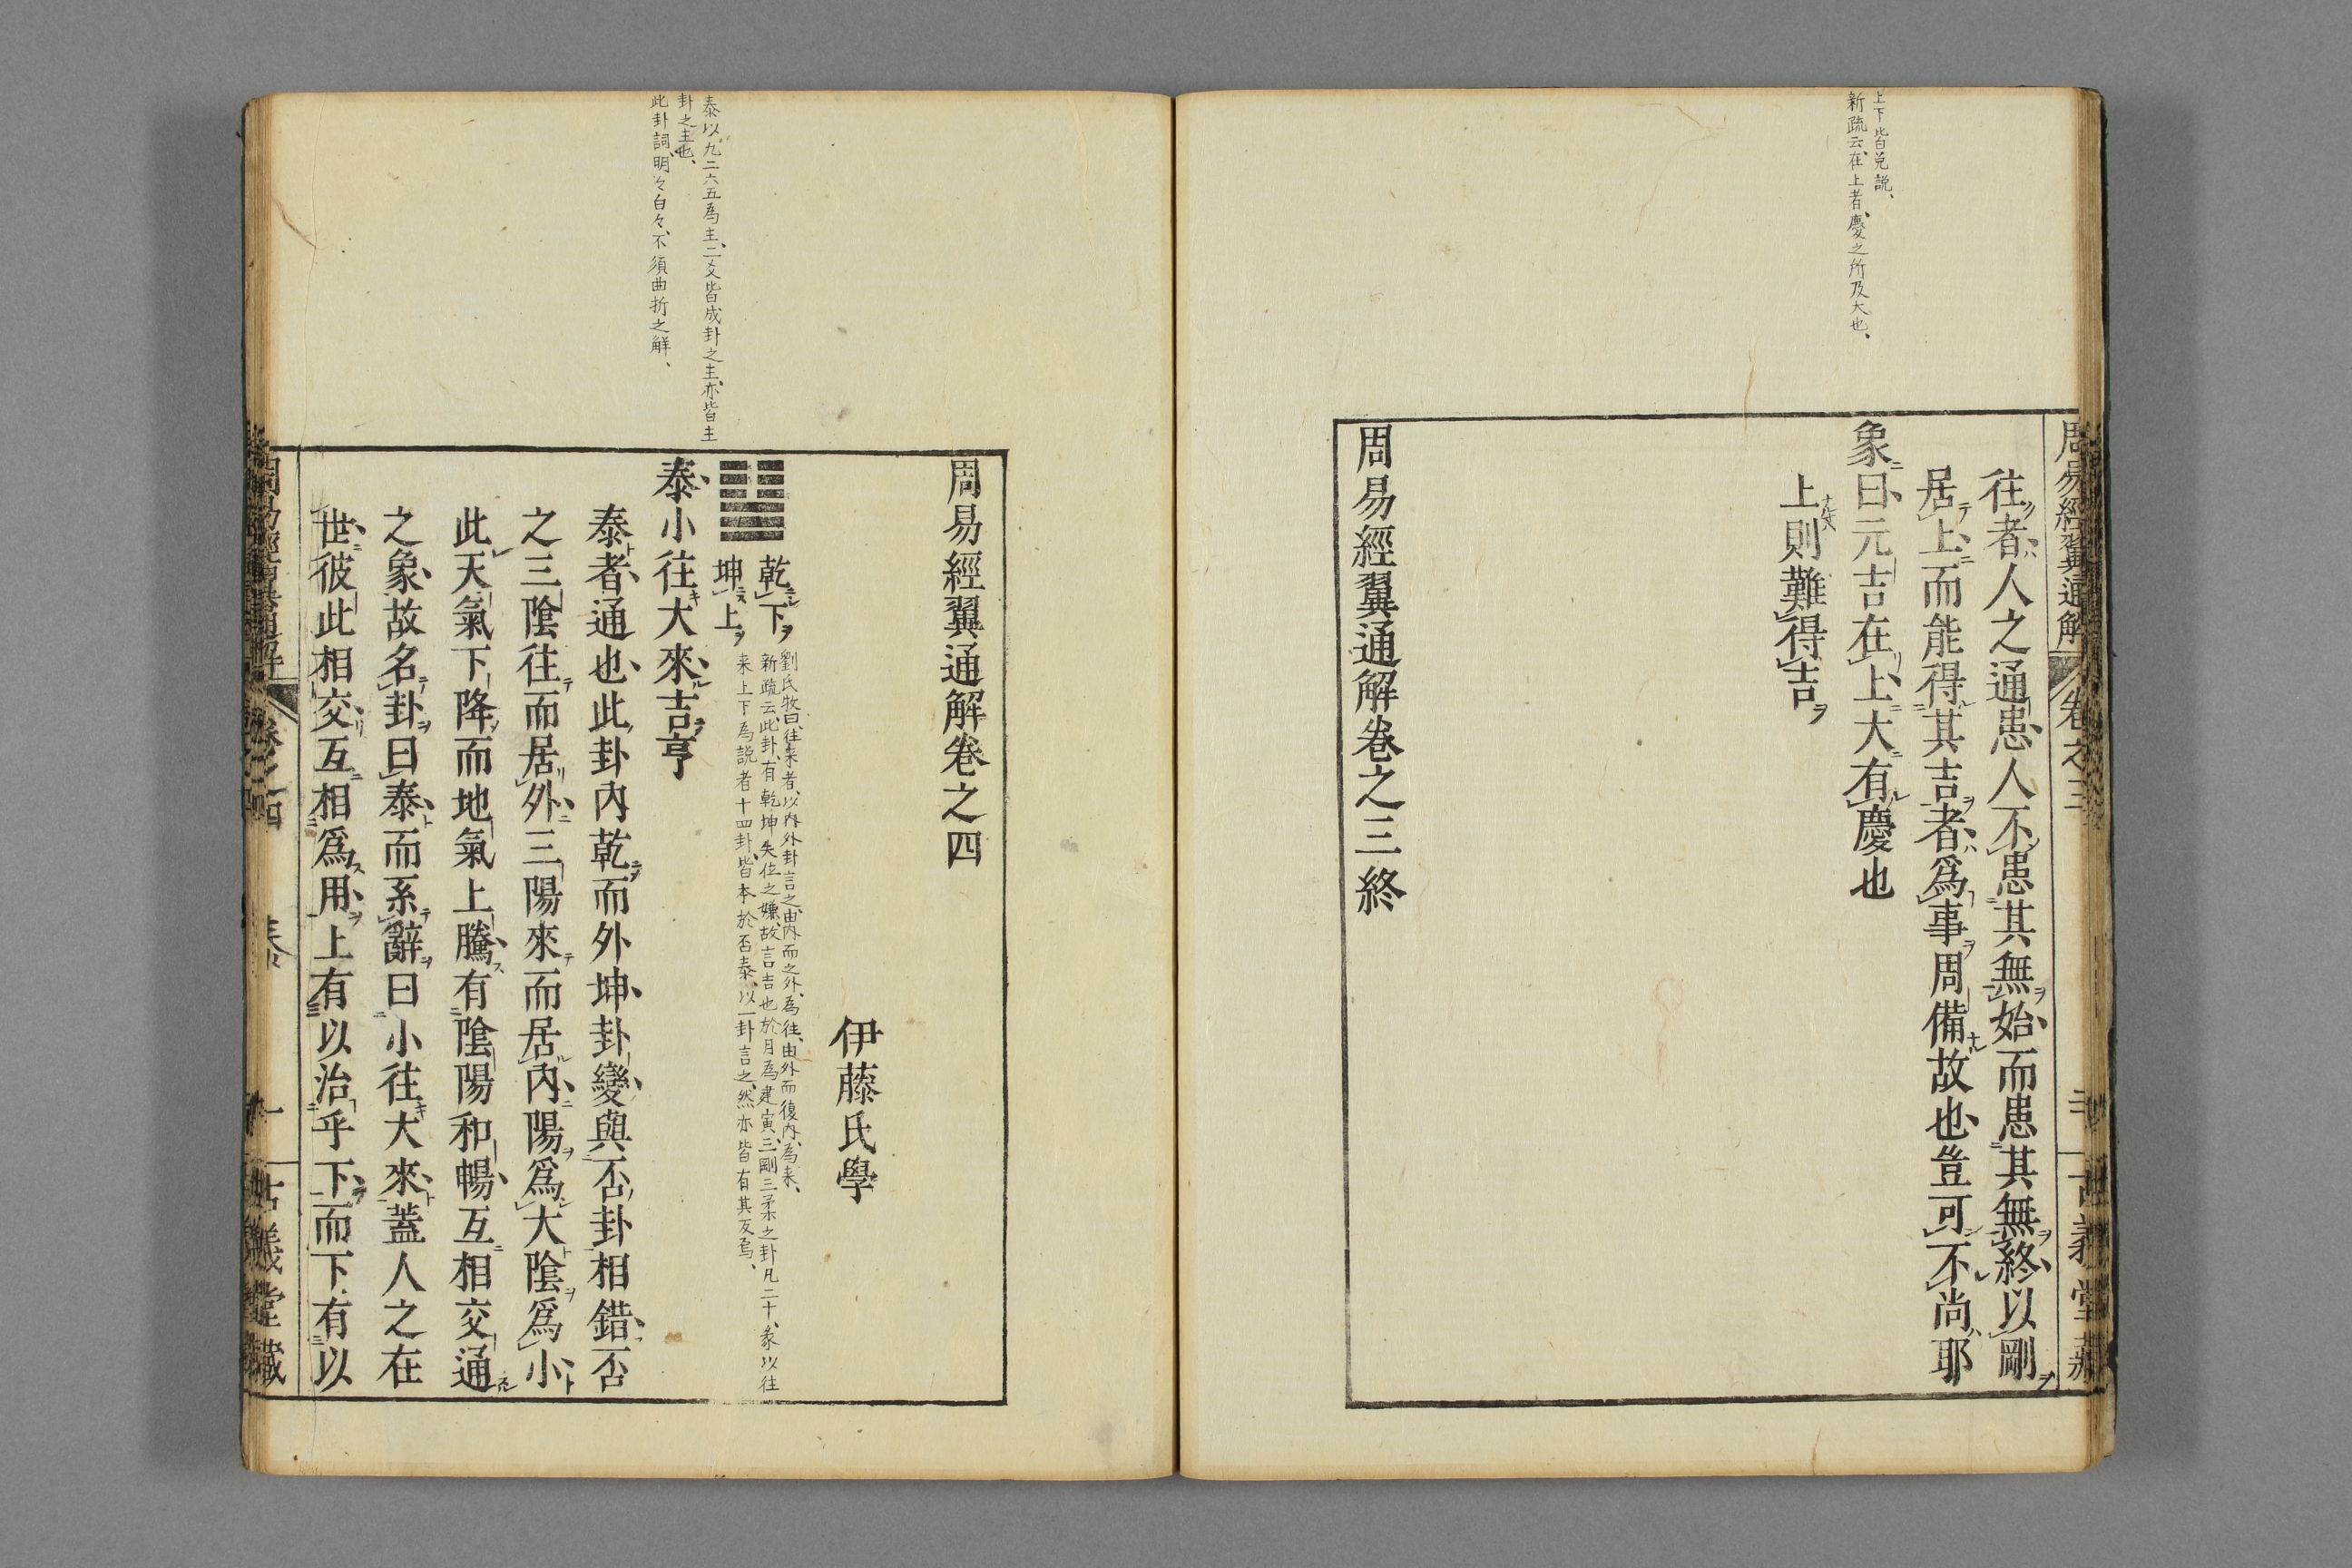 上下皆兌説、
新疏云、在上者、慶之所及大也、
周易經翼通解
卷之三
古義堂藏
往者人之通患人不患其無始而患其無終以剛
居上而能得其吉者爲事周備故也豈可不尚耶
象曰元吉在上大有慶也
上則難得吉
周易經翼通解卷之三終
周易經翼通解卷之四
伊藤氏學
泰以九二六五為主、二爻皆成卦之主、亦皆主
卦之主也、
此卦詞、明々白々、不須曲折之解、
乾下
坤上
劉氏牧曰、往来者、以内外卦言之、由内而之外、為往、由外而復内、為来、
新疏云、此卦、有乾坤失位之嫌、故言吉也於月為建寅、三剛三柔之卦凡二十、彖以往
来上下為説者十四卦、皆本於否泰、以一卦言之、然亦皆有其反焉、
泰小往大來吉亨
泰者通也此卦内乾而外坤卦變與否卦相錯否
之三陰往而居外三陽來而居内陽爲大陰爲小
此天氣下降而地氣上騰有陰陽和暢互相交通
之象故名卦曰泰而系辭曰小往大來蓋人之在
世彼此相交互相爲用上有以治乎下而下有以
周易經翼通解
卷之四
泰
一
古義堂藏